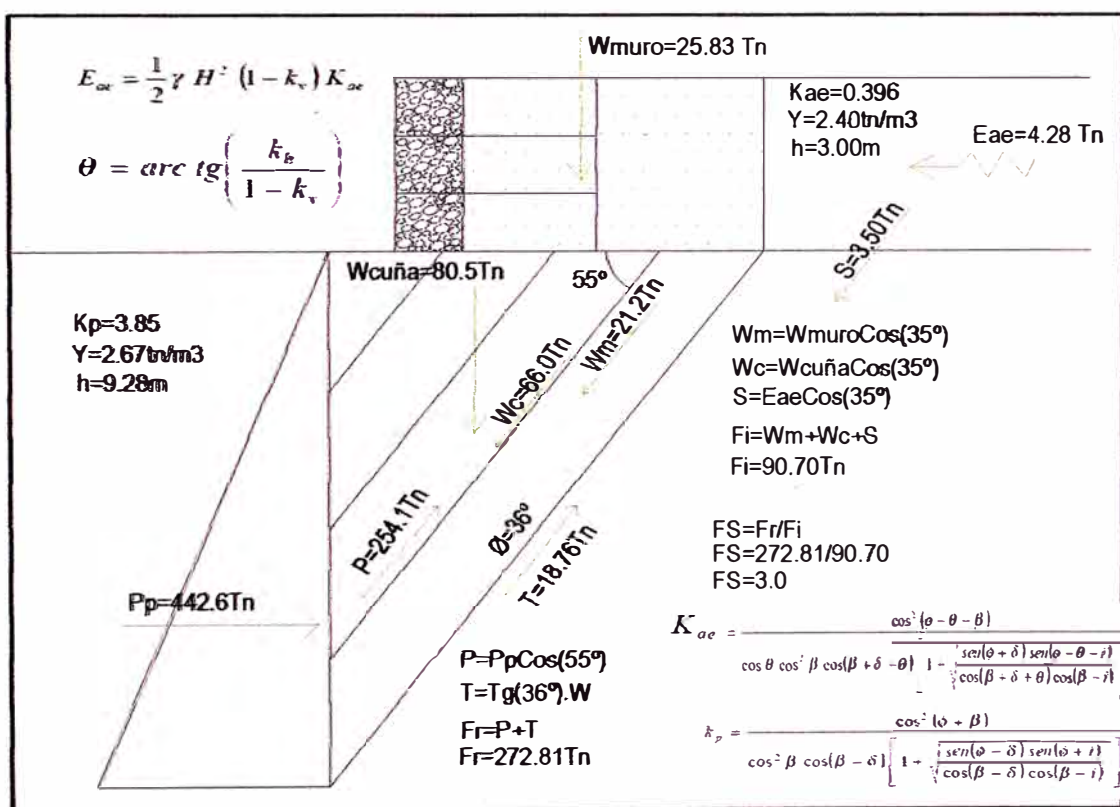 Wmuro=25.83 Tn
E_ae = 1/2 γ H² (1 − k_v) K_ae
θ = arc tg( k_h / (1 − k_v) )
Kae=0.396
Y=2.40tn/m3
h=3.00m
Eae=4.28 Tn
S=3.50Tn
Wcuña=80.5Tn
55º
Wm=21.2Tn
Wc=66.0Tn
Kp=3.85
Y=2.67tn/m3
h=9.28m
Wm=WmuroCos(35º)
Wc=WcuñaCos(35º)
S=EaeCos(35º)
Fi=Wm+Wc+S
Fi=90.70Tn
P=254.1Tn
Ø=36º
T=18.76Tn
FS=Fr/Fi
FS=272.81/90.70
FS=3.0
Pp=442.6Tn
P=PpCos(55º)
T=Tg(36º).W
Fr=P+T
Fr=272.81Tn
K_ae = cos²(ϕ − θ − β) / cos θ cos² β cos(β + δ − θ) 1 − √( sen(ϕ + δ) sen(ϕ − θ − i) / cos(β + δ + θ) cos(β − i) )
k_p = cos² (ϕ + β) / cos² β cos(β − δ) [ 1 + √( sen(ϕ − δ) sen(ϕ + i) / cos(β − δ) cos(β − i) ) ]